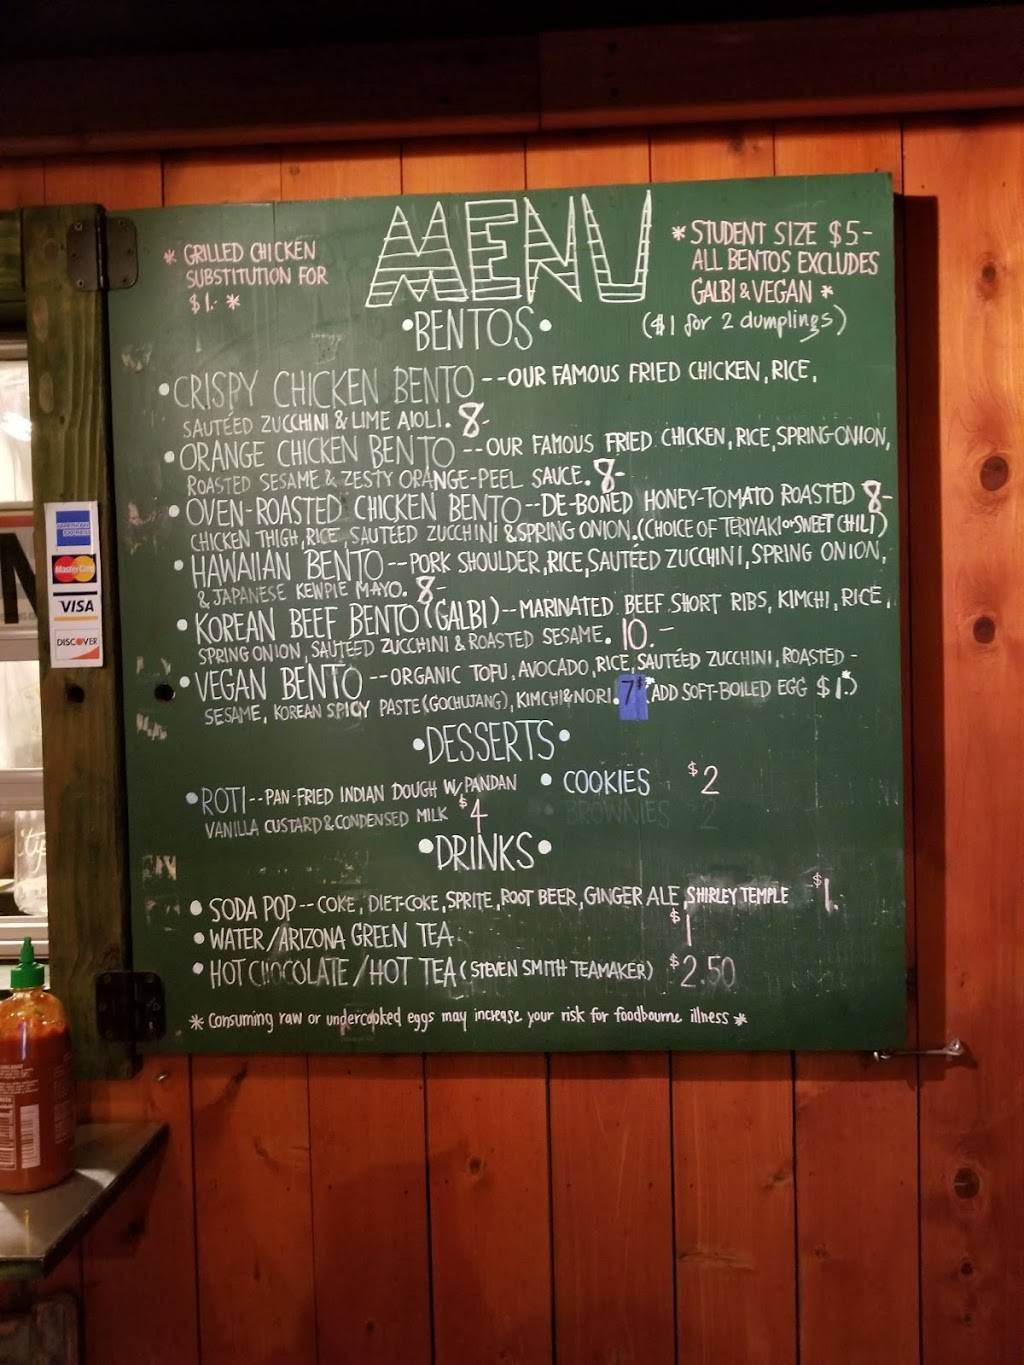 MENU
* GRILLED CHICKEN
SUBSTITUTION FOR
$1.- *
* STUDENT SIZE $5-
ALL BENTOS EXCLUDES
GALBI & VEGAN *
($1 for 2 dumplings)
•BENTOS•
•CRISPY CHICKEN BENTO--OUR FAMOUS FRIED CHICKEN, RICE,
SAUTÉED ZUCCHINI & LIME AIOLI. 8-
•ORANGE CHICKEN BENTO--OUR FAMOUS FRIED CHICKEN, RICE, SPRING-ONION,
ROASTED SESAME & ZESTY ORANGE-PEEL SAUCE. 8-
•OVEN-ROASTED CHICKEN BENTO--DE-BONED HONEY-TOMATO ROASTED 8-
CHICKEN THIGH, RICE, SAUTÉED ZUCCHINI & SPRING ONION. (CHOICE OF TERIYAKI or SWEET CHILI)
•HAWAIIAN BENTO--PORK SHOULDER, RICE, SAUTÉED ZUCCHINI, SPRING ONION,
& JAPANESE KEWPIE MAYO. 8-
•KOREAN BEEF BENTO (GALBI)--MARINATED BEEF SHORT RIBS, KIMCHI, RICE,
SPRING ONION, SAUTÉED ZUCCHINI & ROASTED SESAME. 10.-
•VEGAN BENTO--ORGANIC TOFU, AVOCADO, RICE, SAUTÉED ZUCCHINI, ROASTED-
SESAME, KOREAN SPICY PASTE (GOCHUJANG), KIMCHI & NORI. 7$ *(ADD SOFT-BOILED EGG $1.*)
•DESSERTS•
•ROTI--PAN-FRIED INDIAN DOUGH W/PANDAN
VANILLA CUSTARD & CONDENSED MILK $4
•COOKIES $2
•BROWNIES 2
•DRINKS•
•SODA POP--COKE, DIET-COKE, SPRITE, ROOT BEER, GINGER ALE, SHIRLEY TEMPLE $1.
•WATER/ARIZONA GREEN TEA $1
•HOT CHOCOLATE/HOT TEA (STEVEN SMITH TEAMAKER) $2.50
* Consuming raw or undercooked eggs may increase your risk for foodbourne illness *
AMERICAN EXPRESS
MasterCard
VISA
DISCOVER
N